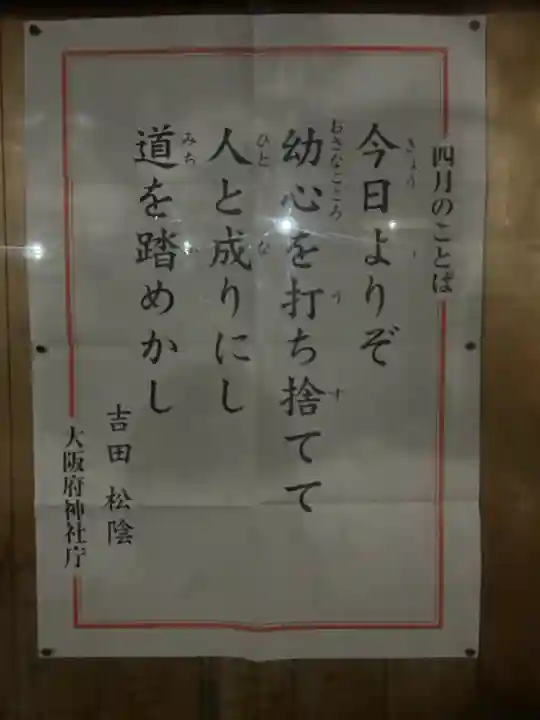 四月のことば
今日よりぞ
幼心を打ち捨てて
人と成りにし
道を踏めかし
吉田 松陰
大阪府神社庁